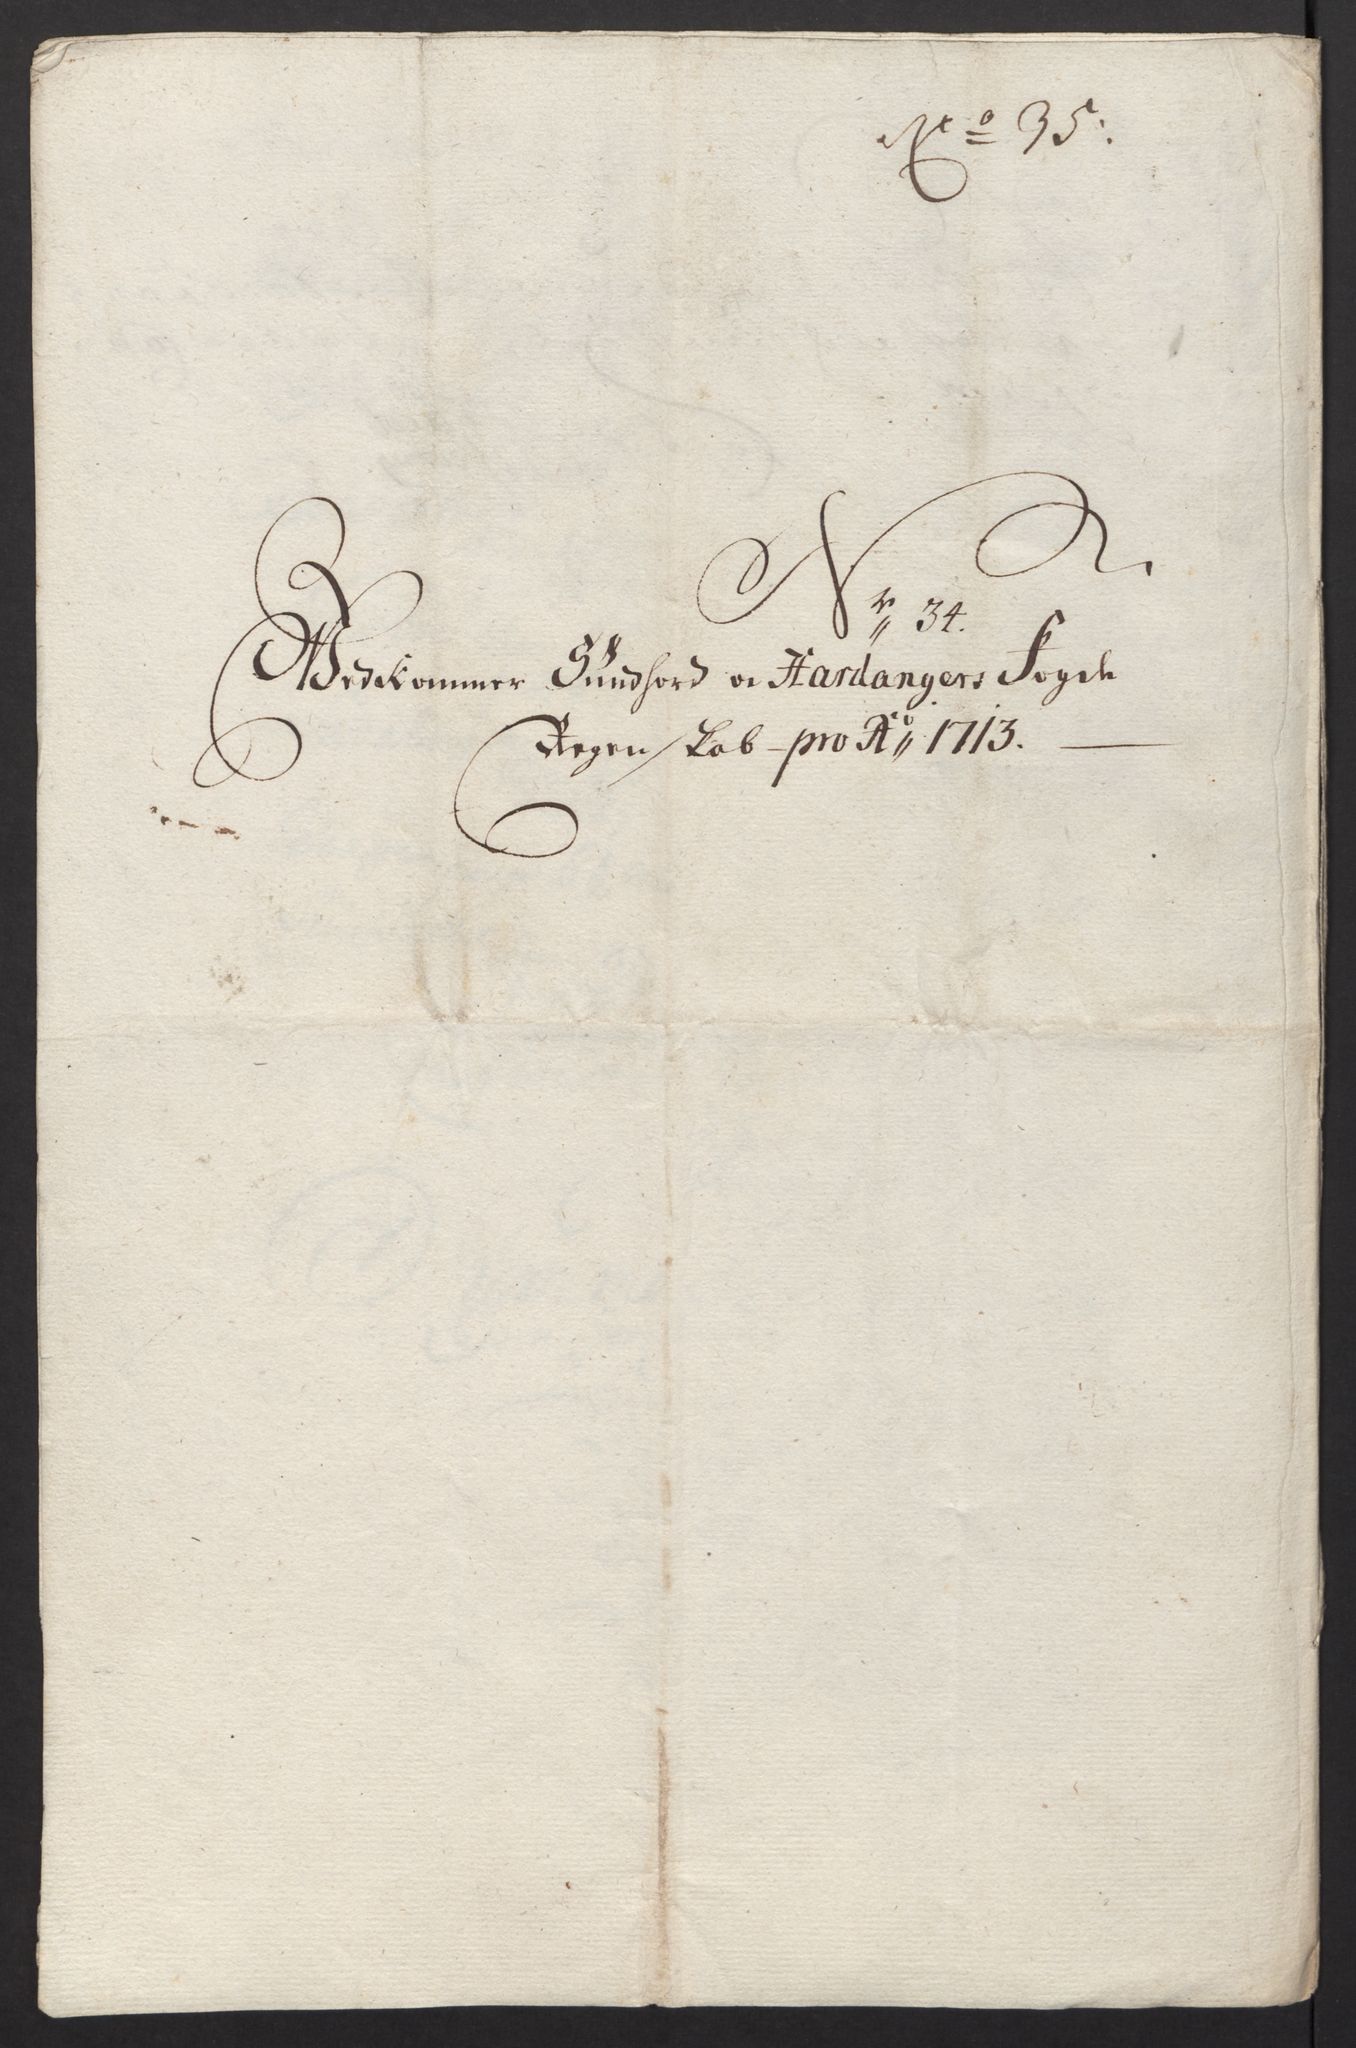 No 35.
Nr 34.
Wedkommer Sundhord oc Hardangers Fogde
Regen/kab pro Ao 1713.